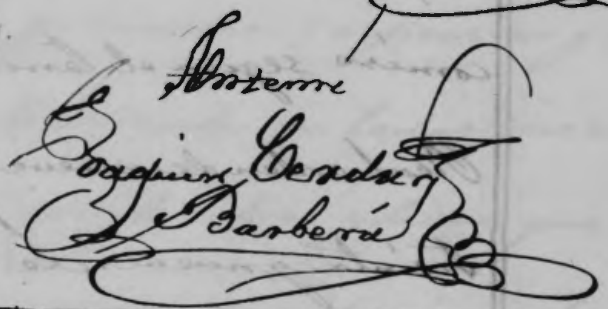 Ante mi
Joaquin Cerdan y
Barberá